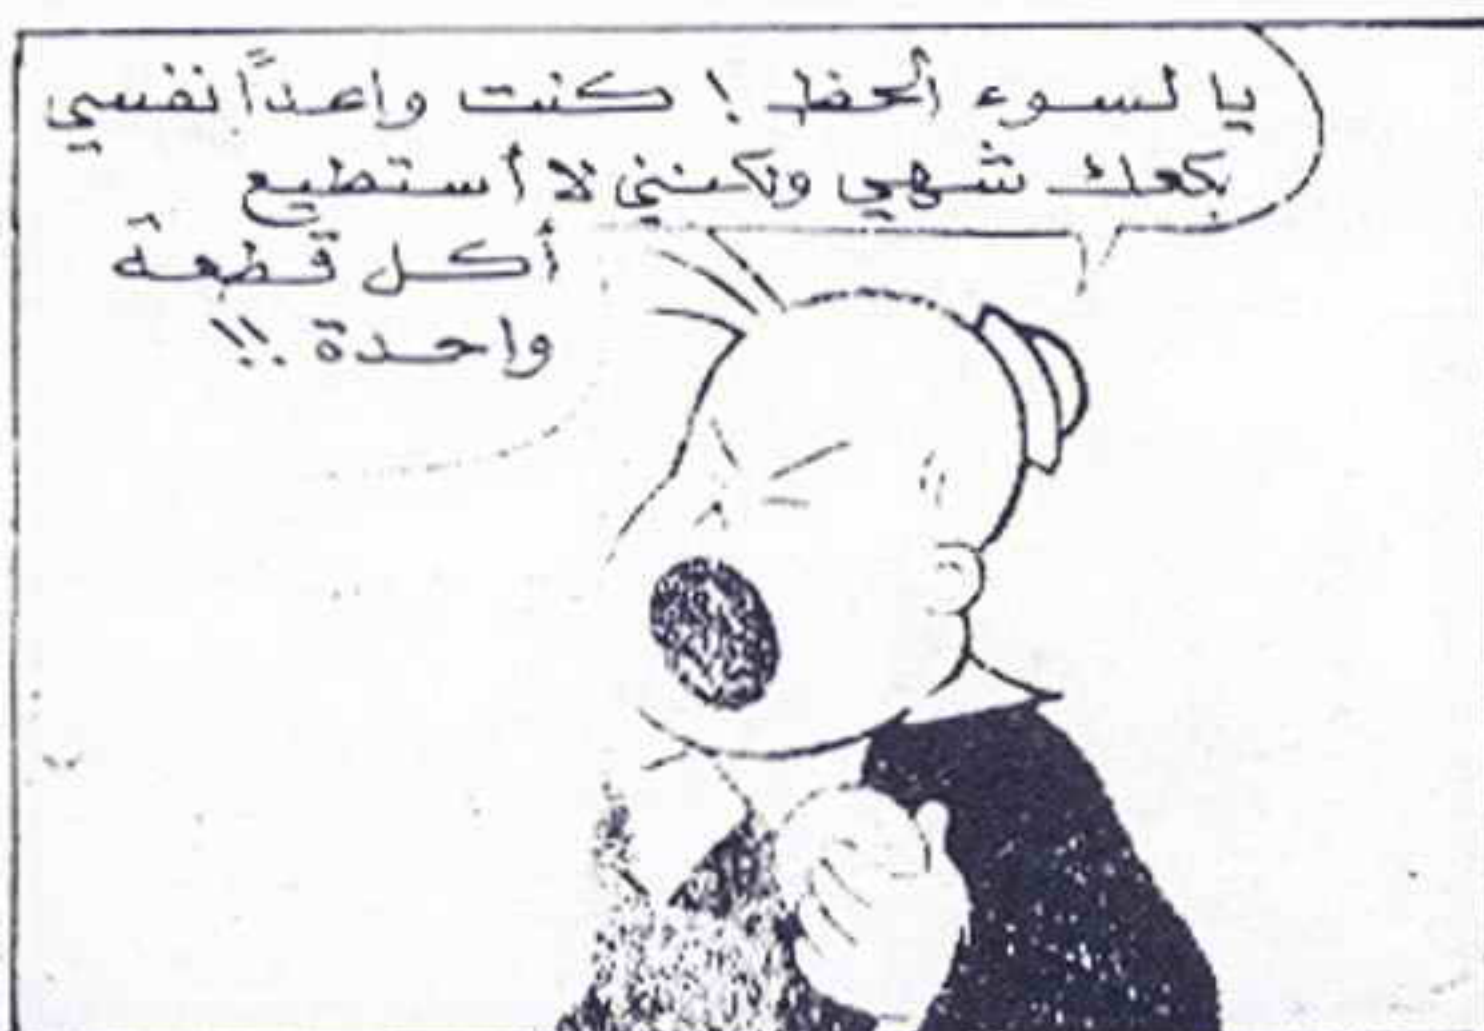 يا لسوء الحظ ! كنت واعداً نفسي
بكعك شهي ولكنني لا أستطيع
أكل قطعة
واحدة !!